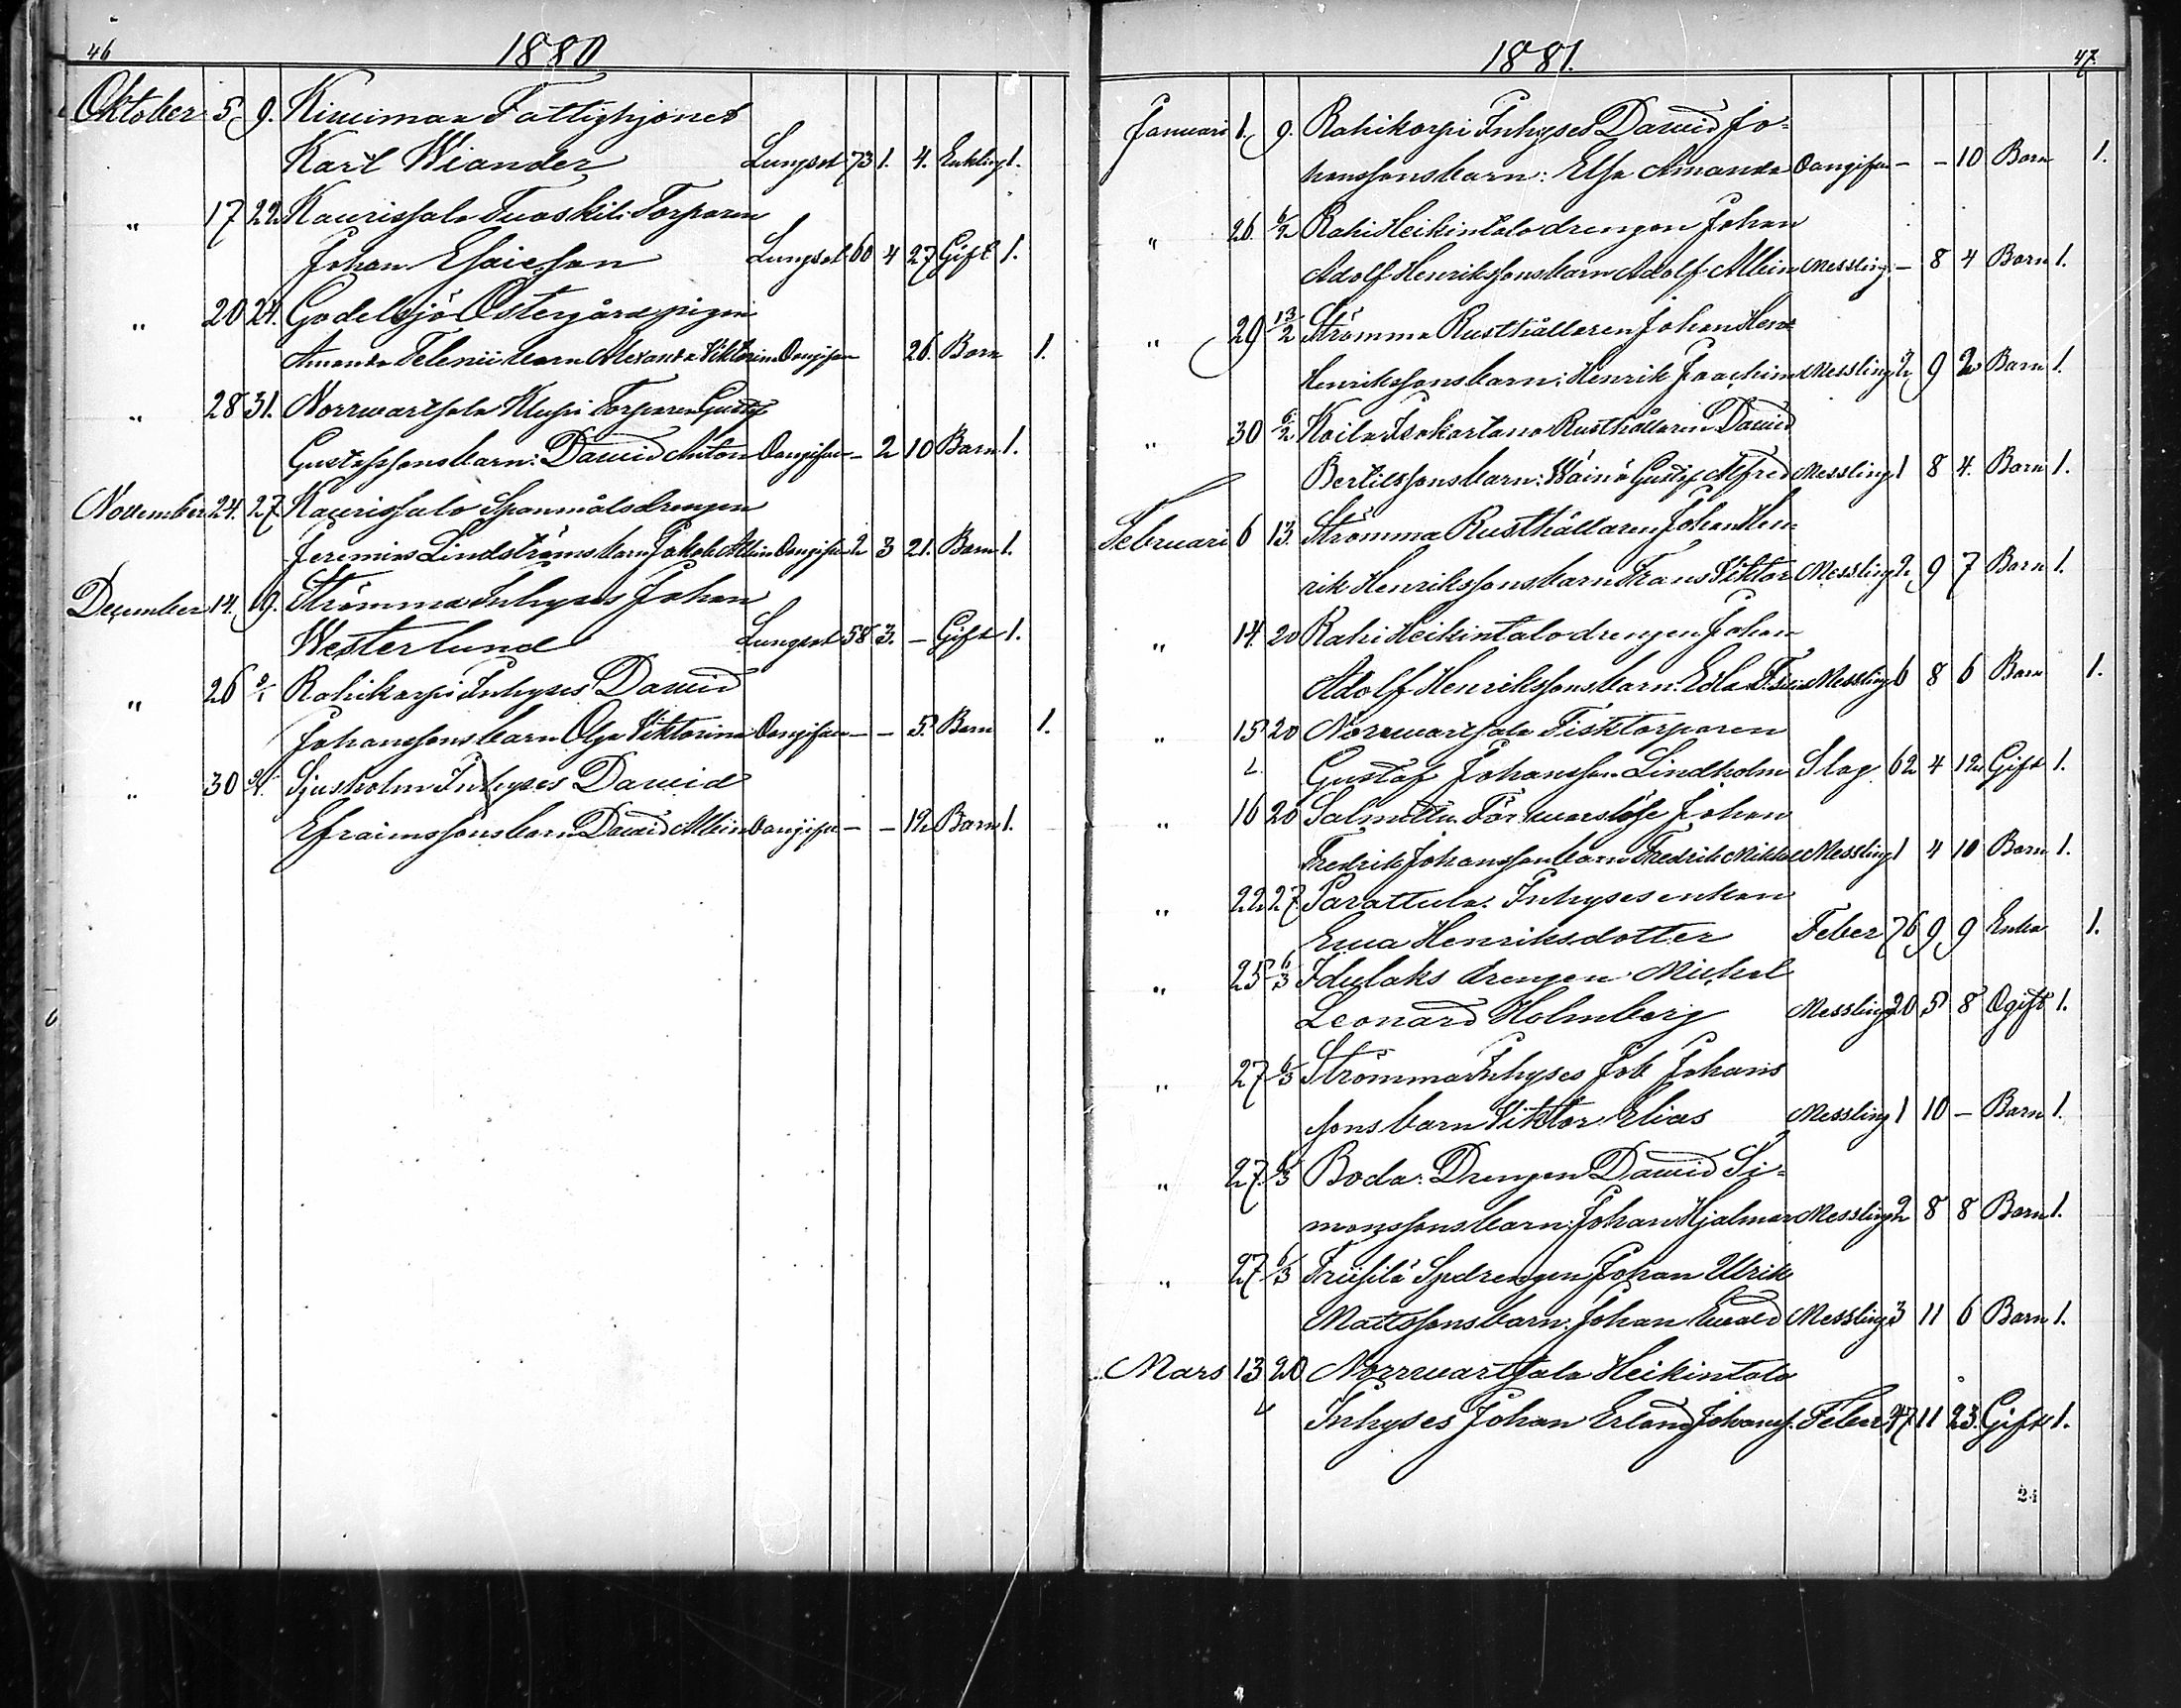 46
1880
Oktober 5 9. Kiwimaa Fattighjonet
Karl Wiander Lungsot 73 1. 4. Enkling 1.
" 17 22 Kaurissalo Tuoskili Torparen
Johan Esaiesson Lungsot 60 4 27 Gift 1.
" 20 24. Godelsjö Östergård pigan
Amanda Telenii barn Alexandra Viktorina Oangifven 26. Barn 1.
" 28 31. Norrwartsala Torparen Gustaf
Gustafssons barn: Dawid Anton Oangifven - 2 10 Barn 1.
November 24. 27 Kaurissalo Spanmålsdrengen
Jeremias Lindströms barn Jakob Albin Oangifven 2 3 21. Barn 1.
December 14. 19. Strömma Inhyses Johan
Westerlund Lungsot 58 3. - Gift 1.
" 26 2/1 Rahikorpi Inhyses Dawid
Johanssons barn Olga Viktorina Oangifven - - 5. Barn 1.
" 30 Sjusholm Inhyses Dawid
Efraimssons barn Dawid Albin Oangifven - - 12 Barn 1.
1881.
47.
Januari 1. 9. Rahikorpi Inhyses Dawid Jo-
hanssons barn: Elsa Amanda Oangifven - - 10 Barn 1.
" 26. 6/2 Rahi Heikintalo drengen Johan
Adolf Henrikssons barn Adolf Albin Messling - 8 4 Barn 1.
" 29 13/2 Strömma Rusthållaren Johan Hen=
Henrikssons barn: Henrik Joachim Messling 2 9 2 Barn 1.
" 30 6/2 Koila Isokartano Rusthållaren Dawid
Bertilssons barn: Wäinö Gustaf Alfred Messling 1 8 4. Barn 1.
Februari 6 13. Strömma Rusthållaren Johan Hen=
rik Henrikssons barn Frans Viktor Messling 2 9 7 Barn 1.
" 14. 20 Rahi Heikintalo drengen Johan
Adolf Henrikssons barn: Edla Messling 6 8 6 Barn 1.
" 15 20 Norrwartsala Fisktorparen
Gustaf Johansson Lindholm Slag 62 4 12 Gift 1.
" 16 20 Salmittu Förswarslöse Johan
Fredrik Johansson barn Fredrik Mikael Messling 1 4 10 Barn 1.
" 22 27 Parattula Inhyses enkan
Ewa Henriksdotter Feber 76 9 9 Enka 1.
" 25 6/3 drengen Michel
Leonard Holmberg Messling 20 5 8 Ogift 1.
" 27 6/3 Strömma Inhyses Job Johans
sons barn Viktor Elias Messling 1 10 - Barn 1.
" 27. 6/3 Boda. Drengen Dawid Si=
monssons barn: Johan Hjalmar Messling 2 8 8 Barn 1.
" 27 6/3 Friisilä Spdrengen Johan Ulrik
Mattssons barn: Johan Ewald Messling 3 11 6 Barn 1.
Mars 13 20 Norrwartsala Heikintalo
Inhyses Johan Erland Johanss. Feber 47 11 23. Gift 1.
24